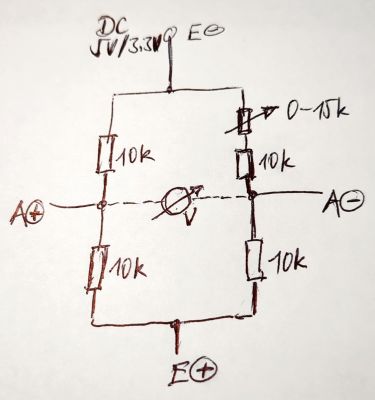 DC
5V/3.3V E⊖
0-15k
10k 10k
A⊕ V A⊖
10k 10k
E⊕